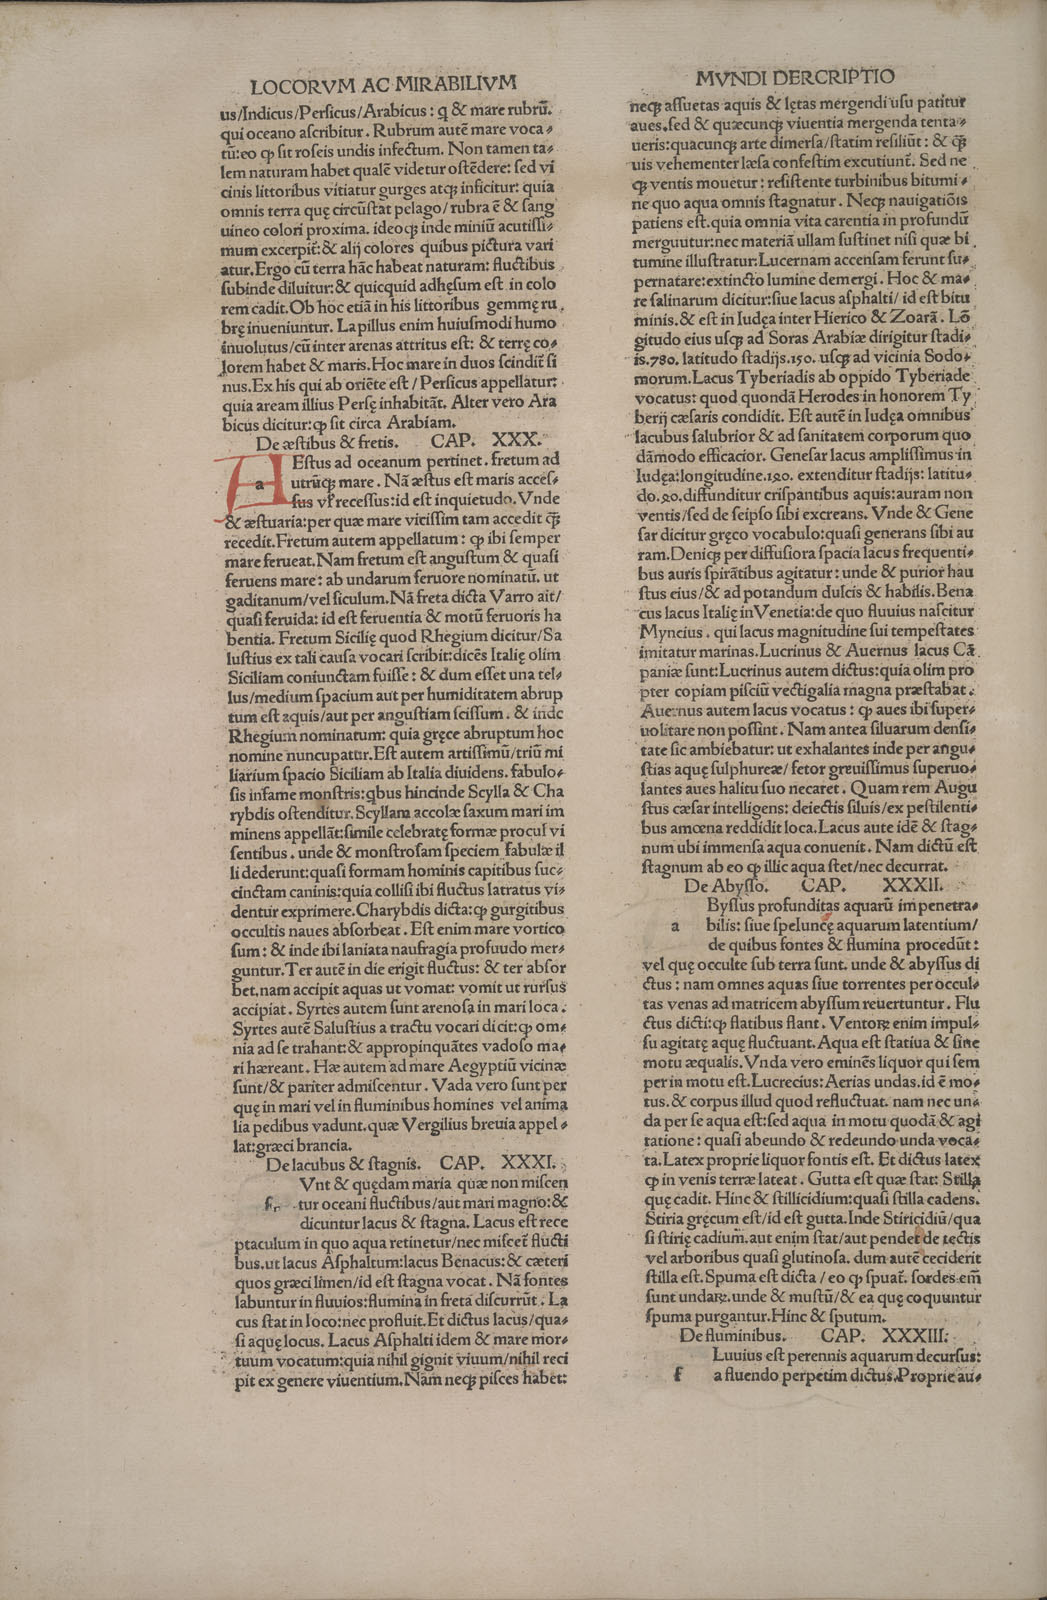 LOCORVM AC MIRABILIVM
us/Indicus/Perſicus/Arabicus: q̨ & mare rubrū.
qui oceano aſcribitur. Rubrum autē mare voca⸗
tū: eo ꝙ ſit roſeis undis infectum. Non tamen ta⸗
lem naturam habet qualē videtur oſtēdere: ſed vi
cinis littoribus vitiatur gurges atqꝫ inficitur: quia
omnis terra quę circūſtat pelago/rubra ē & ſang
uineo colori proxima. ideoqꝫ inde miniū acutiſſi⸗
mum excerpit̄: & alij colores quibus pictura vari
atur. Ergo cū terra hāc habeat naturam: fluctibus
ſubinde diluitur: & quicquid adhęſum eſt in colo
rem cadit. Ob hoc etiā in his littoribus gemmę ru
brę inueniuntur. Lapillus enim huiuſmodi humo
inuolutus/cū inter arenas attritus eſt: & terrę co⸗
lorem habet & maris. Hoc mare in duos ſcindit̄ ſi
nus. Ex his qui ab oriēte eſt/Perſicus appellatur:
quia aream illius Perſę inhabitāt. Alter vero Ara
bicus dicitur: ꝙ ſit circa Arabiam.
De æſtibus & fretis. CAP. XXX.
a Eſtus ad oceanum pertinet. fretum ad
utrūqꝫ mare. Nā æſtus eſt maris acceſ⸗
ſus vl̄ receſſus: id eſt inquietudo. Vnde
& æſtuaria: per quæ mare viciſſim tam accedit ꝙ̄
recedit. Fretum autem appellatum: ꝙ ibi ſemper
mare ferueat. Nam fretum eſt anguſtum & quaſi
feruens mare: ab undarum feruore nominatū. ut
gaditanum/vel ſiculum. Nā freta dicta Varro ait/
quaſi feruida: id eſt feruentia & motū feruoris ha
bentia. Fretum Sicilię quod Rhegium dicitur/Sa
luſtius ex tali cauſa vocari ſcribit: dicēs Italię olim
Siciliam coniunctam fuiſſe: & dum eſſet una tel⸗
lus/medium ſpacium aut per humiditatem abrup
tum eſt aquis/aut per anguſtiam ſciſſum. & inde
Rhegium nominatum: quia gręce abruptum hoc
nomine nuncupatur. Eſt autem artiſſimū/triū mi
liarium ſpacio Siciliam ab Italia diuidens. fabulo⸗
ſis infame monſtris: qbus hincinde Scylla & Cha
rybdis oſtenditur. Scyllam accolæ ſaxum mari im
minens appellāt: ſimile celebratę formæ procul vi
ſentibus. unde & monſtroſam ſpeciem fabulæ il
li dederunt: quaſi formam hominis capitibus ſuc⸗
cinctam caninis: quia colliſi ibi fluctus latratus vi⸗
dentur exprimere. Charybdis dicta: ꝙ gurgitibus
occultis naues abſorbeat. Eſt enim mare vortico
ſum: & inde ibi laniata naufragia profuudo mer⸗
guntur. Ter autē in die erigit fluctus: & ter abſor
bet. nam accipit aquas ut vomat: vomit ut rurſus
accipiat. Syrtes autem ſunt arenoſa in mari loca.
Syrtes autē Saluſtius a tractu vocari dicit: ꝙ om⸗
nia ad ſe trahant: & appropinquātes vadoſo ma⸗
ri hæreant. Hæ autem ad mare Aegyptiū vicinæ
ſunt/& pariter admiſcentur. Vada vero ſunt per
quę in mari vel in fluminibus homines vel anima
lia pedibus vadunt. quæ Vergilius breuia appel⸗
lat: græci brancia.
De lacubus & ſtagnis. CAP. XXXI.
ſ Vnt & quędam maria quæ non miſcen
tur oceani fluctibus/aut mari magno: &
dicuntur lacus & ſtagna. Lacus eſt rece
ptaculum in quo aqua retinetur/nec miſcet̄ flucti
bus. ut lacus Aſphaltum: lacus Benacus: & cæteri
quos græci limen/id eſt ſtagna vocat. Nā fontes
labuntur in fluuios: flumina in freta diſcurrūt. La
cus ſtat in loco: nec profluit. Et dictus lacus/qua⸗
ſi aquę locus. Lacus Aſphalti idem & mare mor⸗
tuum vocatum: quia nihil gignit viuum/nihil reci
pit ex genere viuentium. Nam neqꝫ piſces habet:
MVNDI DERCRIPTIO
neqꝫ aſſuetas aquis & lętas mergendi uſu patitur
aues. ſed & quæcunqꝫ viuentia mergenda tenta⸗
ueris: quacunqꝫ arte dimerſa/ſtatim reſiliūt: & ꝙ̄
uis vehementer læſa confeſtim excutiunt̄. Sed ne
qꝫ ventis mouetur: reſiſtente turbinibus bitumi⸗
ne quo aqua omnis ſtagnatur. Neqꝫ nauigatiōis
patiens eſt. quia omnia vita carentia in profundū
merguutur: nec materiā ullam ſuſtinet niſi quæ bi
tumine illuſtratur: Lucernam accenſam ferunt ſu⸗
pernatare: extincto lumine demergi. Hoc & ma⸗
re ſalinarum dicitur: ſiue lacus aſphalti/id eſt bitu
minis. & eſt in Iudęa inter Hierico & Zoarā. Lō
gitudo eius uſqꝫ ad Soras Arabiæ dirigitur ſtadi⸗
is. 780. latitudo ſtadijs. 150. uſqꝫ ad vicinia Sodo⸗
morum. Lacus Tyberiadis ab oppido Tyberiade
vocatus: quod quondā Herodes in honorem Ty
berij cæſaris condidit. Eſt autē in Iudęa omnibus
lacubus ſalubrior & ad ſanitatem corporum quo
dāmodo efficacior. Geneſar lacus ampliſſimus in
Iudęa: longitudine. 120. extenditur ſtadijs: latitu⸗
do. 20. diffunditur criſpantibus aquis: auram non
ventis/ſed de ſeipſo ſibi excreans. Vnde & Gene
ſar dicitur gręco vocabulo: quaſi generans ſibi au
ram. Deniqꝫ per diffuſiora ſpacia lacus frequenti⸗
bus auris ſpirātibus agitatur: unde & purior hau
ſtus eius/& ad potandum dulcis & habilis. Bena
cus lacus Italię in Venetia: de quo fluuius naſcitur
Myncius. qui lacus magnitudine ſui tempeſtates
imitatur marinas. Lucrinus & Auernus lacus Cā
paniæ ſunt: Lucrinus autem dictus: quia olim pro
pter copiam piſciū vectigalia magna præſtabat.
Auernus autem lacus vocatus: ꝙ aues ibi ſuper⸗
uolitare non poſſint. Nam antea ſiluarum denſi⸗
tate ſic ambiebatur: ut exhalantes inde per angu⸗
ſtias aquę ſulphureæ/fetor greuiſſimus ſuperuo⸗
lantes aues halitu ſuo necaret. Quam rem Augu
ſtus cæſar intelligens: deiectis ſiluis/ex peſtilenti⸗
bus amœna reddidit loca. Lacus aute idē & ſtag⸗
num ubi immenſa aqua conuenit. Nam dictū eſt
ſtagnum ab eo ꝙ illic aqua ſtet/nec decurrat.
De Abyſſo. CAP. XXXII.
a Byſſus profunditas aquarū impenetra⸗
bilis: ſiue ſpeluncę aquarum latentium/
de quibus fontes & flumina procedūt:
vel quę occulte ſub terra ſunt. unde & abyſſus di
ctus: nam omnes aquas ſiue torrentes per occul⸗
tas venas ad matricem abyſſum reuertuntur. Flu
ctus dicti: ꝙ flatibus ſlant. Ventoꝝ enim impul⸗
ſu agitatę aquę fluctuant. Aqua eſt ſtatiua & ſine
motu æqualis. Vnda vero eminēs liquor qui ſem
per in motu eſt. Lucrecius: Aerias undas. id ē mo⸗
tus. & corpus illud quod refluctuat. nam nec un⸗
da per ſe aqua eſt: ſed aqua in motu quodā & agi
tatione: quaſi abeundo & redeundo unda voca⸗
ta. Latex proprie liquor fontis eſt. Et dictus latex
ꝙ in venis terræ lateat. Gutta eſt quæ ſtat: Stilla
quę cadit. Hinc & ſtillicidium: quaſi ſtilla cadens.
Stiria gręcum eſt/id eſt gutta. Inde Stiricidiū/qua
ſi ſtirię cadium. aut enim ſtat/aut pendet de tectis
vel arboribus quaſi glutinoſa. dum autē ceciderit
ſtilla eſt. Spuma eſt dicta/eo ꝙ ſpuat̄. ſordes em̄
ſunt undaꝝ. unde & muſtū/& ea quę coquuntur
ſpuma purgantur. Hinc & ſputum.
De fluminibus. CAP. XXXIII.
f Luuius eſt perennis aquarum decurſus:
a fluendo perpetim dictus. Proprie au⸗